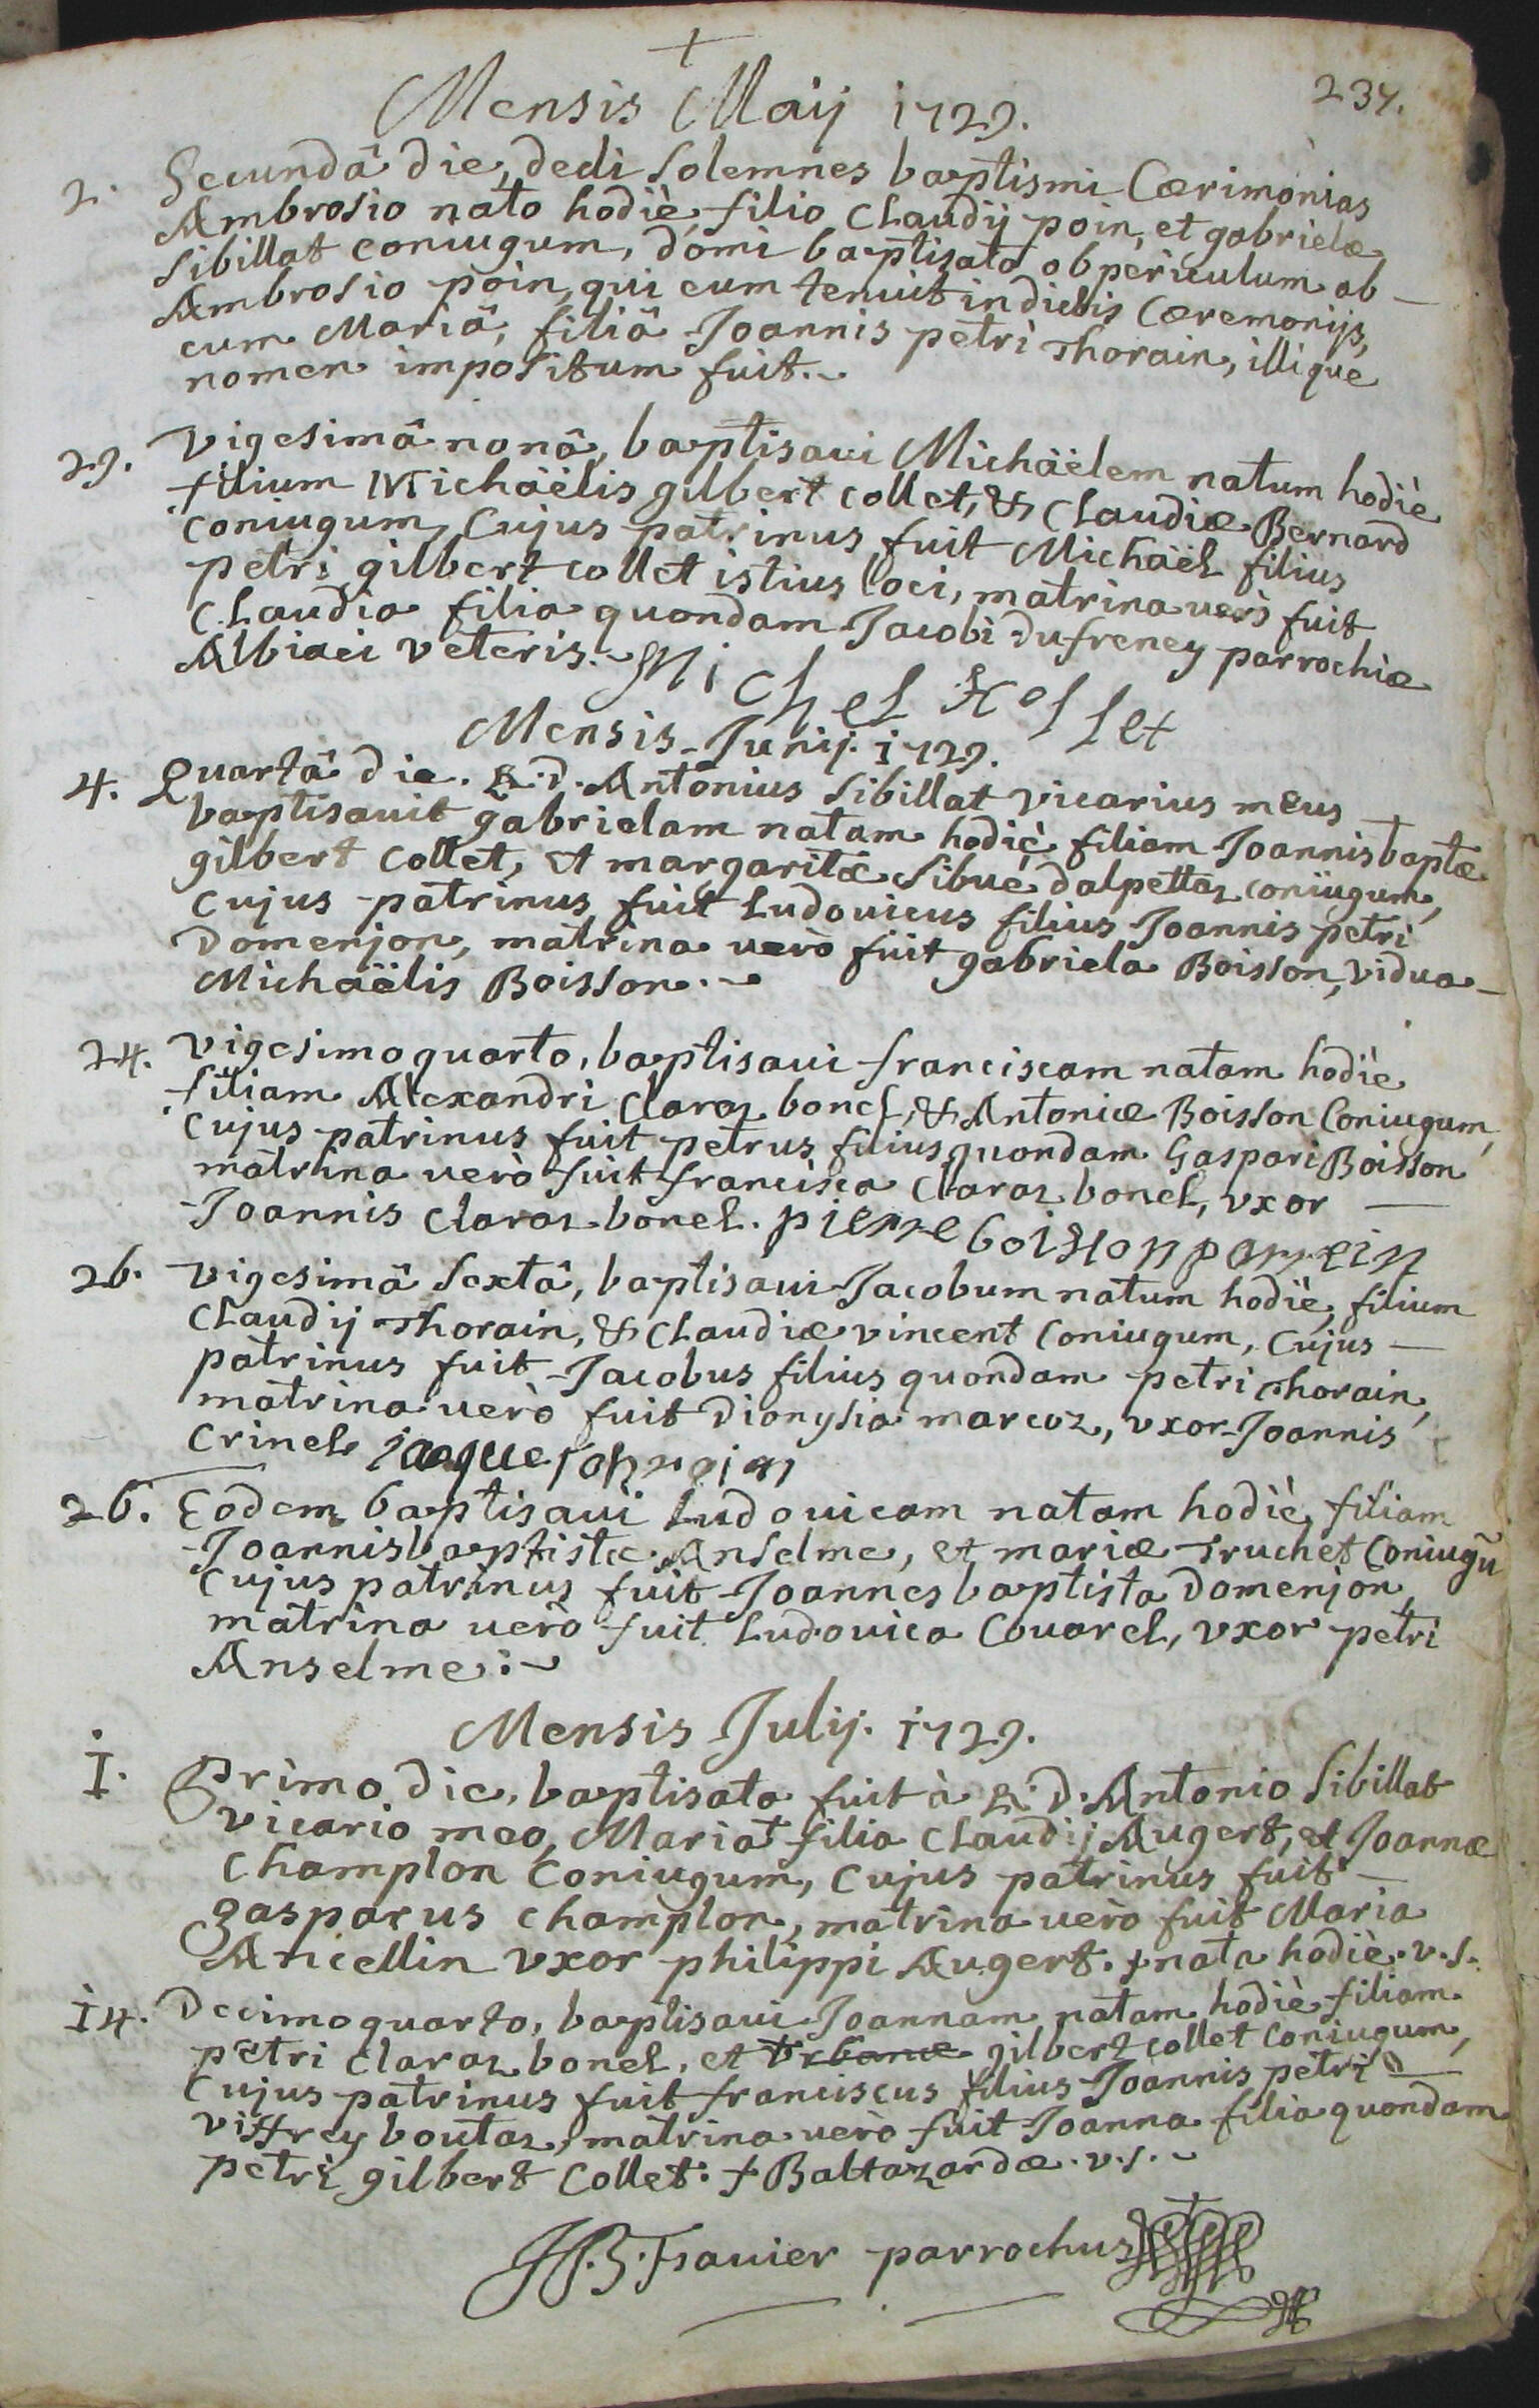 237.
Mensis Maij 1729.
2. Secundâ die, dedi solemnes baptismi Cærimonias
Ambrosio nato hodiè, filio Claudij poin, et gabrielæ
sibillat coniugum, domi baptisato ob periculum ab
Ambrosio poin, qui eum tenuit in dictis Cæremonijs,
cum Mariâ, filiâ Joannis petri Thorain, illique
nomen impositum fuit.
29. Vigesimâ nonâ, baptisaui Michäelem natum hodiè
filium Michäëlis gilbert collet, & Claudiæ Bernard
coniugum, Cujus patrinus fuit Michäel filius
petri gilbert collet istius loci, matrina uerò fuit
Claudia filia quondam Jacobi Dufreney parrochiæ
Albiaci veteris. Michel Kollet
Mensis Junij. 1729.
4. Quartâ die. R. D. Antonius Sibillat vicarius meus
baptisauit gabrielam natam hodiè, filiam Joannisbaptæ
gilbert Collet, et margaritæ Sibué dalpettaz coniugum,
Cujus patrinus fuit Ludouicus filius Joannis petri
Domenjon, matrina uerò fuit gabriela Boisson, vidua
Michäëlis Boisson.
24. Vigesimoquarto, baptisaui franciscam natam hodiè
filiam Alexandri Claraz bonel, & Antoniæ Boisson Coniugum,
Cujus patrinus fuit petrus filius quondam Gaspari Boisson
matrina uerò fuit francisca Claraz bonel, vxor
Joannis Claraz bonel. pierre boisson parrein
26. Vigesimâ sextâ, baptisaui Jacobum natum hodiè, filium
Claudij Thorain, & Claudiæ vincent Coniugum, Cujus
patrinus fuit Jacobus filius quondam petri Thorain,
matrina uerò fuit Dionysia marcoz, vxor Joannis
Crinel. jaque
26. Eodem baptisaui Ludouicam natam hodiè, filiam
Joannisbaptistæ Anselme, et mariæ Truchet Coniugũ
Cujus patrinus fuit Joannesbaptista Domenjon,
matrina uerò fuit Ludouica Couarel, vxor petri
Anselme.
Mensis Julij. 1729.
I. Primo die, baptisata fuit à R. D. Antonio Sibillat
vicario meo, Maria + filia Claudij Augert, et Joannæ
Champlon Coniugum, Cujus patrinus fuit
gasparus Champlon, matrina uerò fuit Maria
Ancellin vxor philippi Augert. + nata hodiè. v.s.
14. Decimoquarto, baptisaui Joannam natam hodiè, filiam
petri Claraz bonel, et Vrbanæ gilbert collet Coniugum,
Cujus patrinus fuit franciscus filius Joannis petri
viffrey boutaz, matrina uerò fuit Joanna filia quondam
petri gilbert Collet. + Baltazardæ. v.s.
parrochus